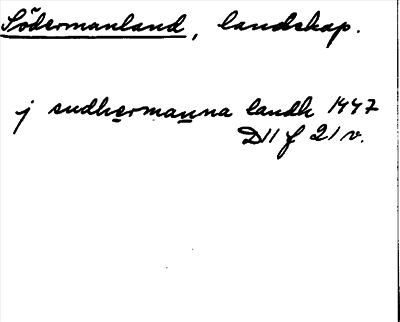 Södermanland, landskap.
j sudhermanna landh 1447
D11 f 21 v.